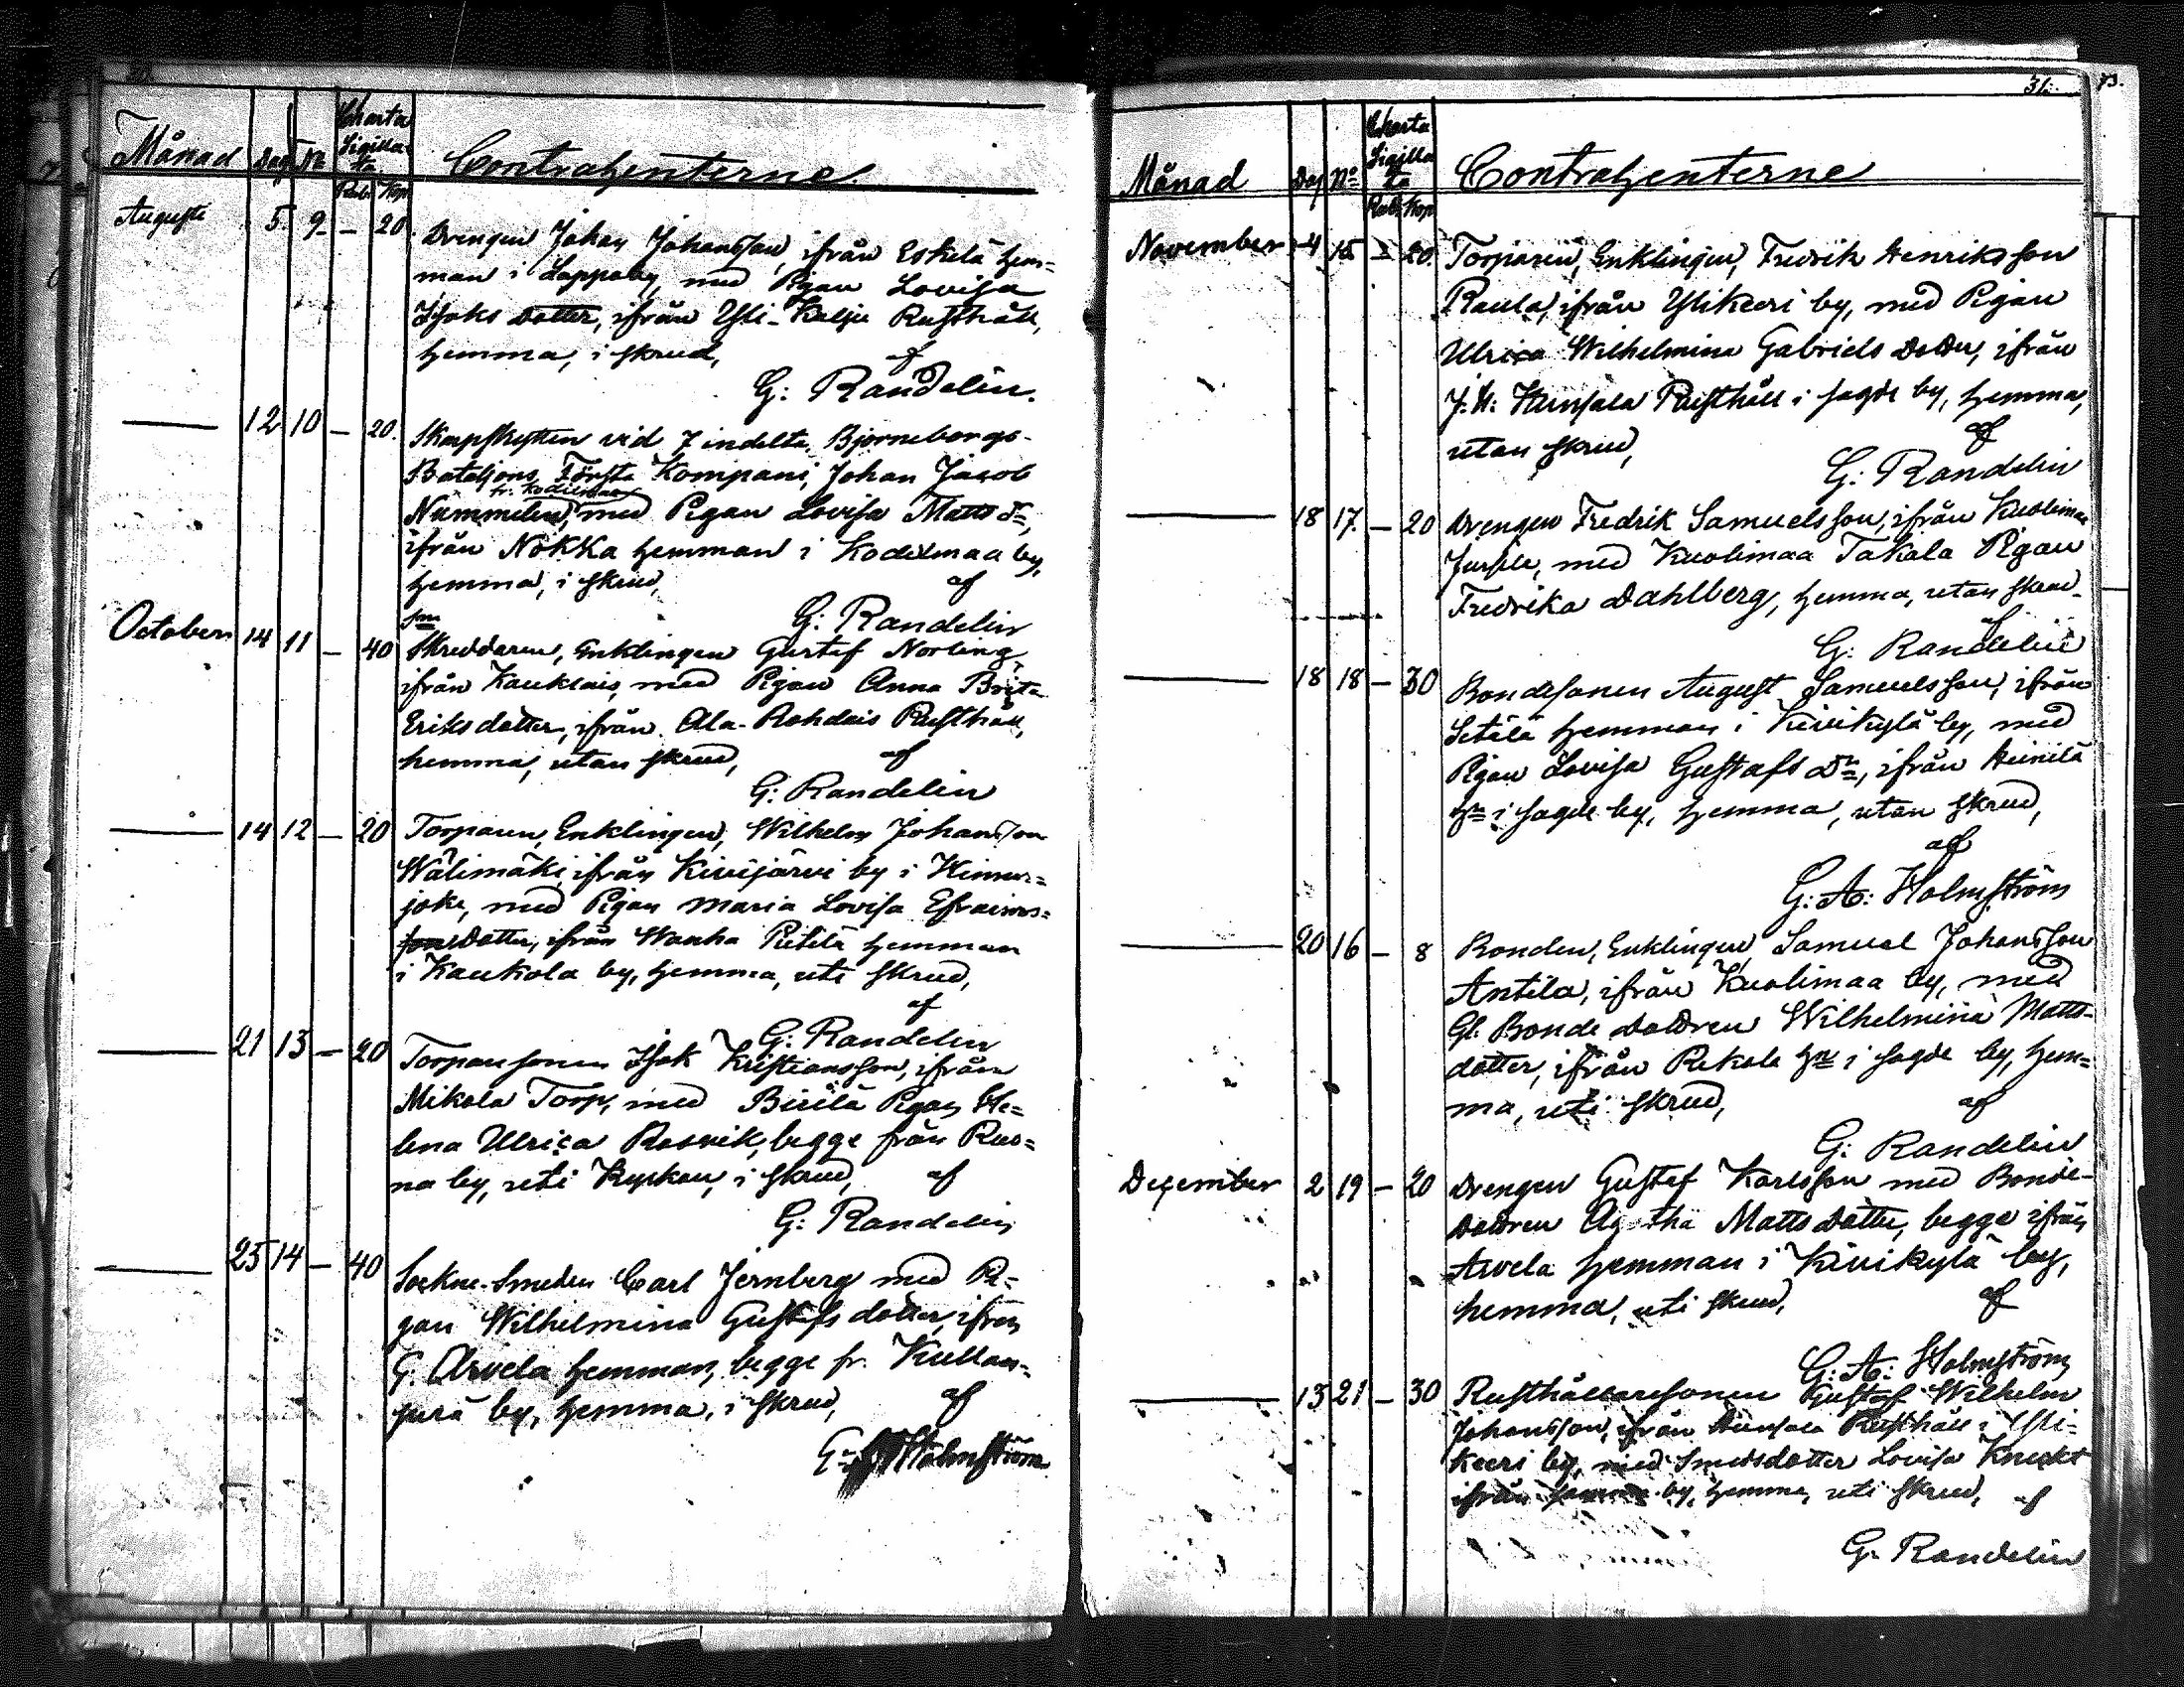 Månad Dag No Charta Sigilla-ta Contrahenterne.
Rub. Kop.
Augusti 5. 9. – 20. Drengen Johan Johansson, ifrån Eskelä hem=
man i Lappaby, med Pigan Lovisa
Isaks dotter, ifrån Yli-Kalju Rusthåll,
hemma, i skrud,
af
G: Randelin.
— 12 10 – 20. Skarpskytten vid 7 indelta Björneborgs-
Bataljons Första Kompani, Johan Jacob
fr. Kodiksmaa
Nummelin, med Pigan Lovisa Matts dr,
ifrån Nokka hemman i Kodixmaa by,
hemma, i skrud,
af
G: Randelin
October 14 11 – 40 Sn Skreddaren, Enklingen Gustaf Norling,
ifrån Kauklais, med Pigan Anna Brita
Eriksdotter, ifrån Ala-Rohdais Rusthåll,
hemma, utan skrud,
af
G: Randelin
— 14 12 – 20 Torparen, Enklingen, Wilhelm Johansson
Wälimäki, ifrån Kivijärvi by i Kiuru=
joki, med Pigan Maria Lovisa Efraims=
dotter, ifrån Wanha Pietilä hemman
i Kaukola by, hemma, uti skrud,
af
G: Randelin
— 21 13 – 20 Torparesonen Isak Kristiansson, ifrån
Mikola Torp, med Birilä Pigan He=
lena Ulrica Rosvik, begge från Rus=
na by, uti Kyrkan, i skrud,
af
G: Randelin
— 25 14 – 40 Sockne-Smeden Carl Jernberg med Pi=
gan Wilhelmina Gustafs dotter, ifrån
G. Arvela hemman, begge fr. Kullan=
perä by, hemma, i skrud,
af
G. A. Holmström
31.
Månad Dag No Charta Sigilla ta Contrahenterne
Rub. Kop.
November 4 15 – 20. Torparen, Enklingen, Fredrik Henriksson
Raula, ifrån Ylikeri by, med Pigan
Ulrica Wilhelmina Gabriels dotter, ifrån
J. H: Hunsala Rusthåll i sagde by, hemma,
utan skrud,
af
G: Randelin
— 18 17 – 20 Drengen Fredrik Samuelsson, ifrån Kuolimaa
Jussila, med Kuolimaa Takala Pigan
Fredrika Dahlberg, hemma, utan skrud.
af
G: Randelin
— 18 18 – 30 Bondesonen August Samuelsson, ifrån
Setälä hemman i Kivikylä by, med
Pigan Lovisa Gustafs dr, ifrån Heinilä
hn i sagde by, hemma, utan skrud,
af
G: A: Holmström
— 20 16 – 8 Bonden, Enklingen, Samuel Johansson
Antila, ifrån Kuolimaa by, med
Gl. Bonde dottren Wilhelmina Matts-
dotter, ifrån Rekola hn i sagde by, hem=
ma, uti skrud,
af
G: Randelin
December 2 19 – 20 Drengen Gustaf Karlsson med Bonde-
dottren Agatha Matts dotter, begge ifrån
Arvela hemman i Kivikylä by,
hemma, uti skrud,
af
G: A: Holmström
— 13 21 – 30 Rusthållaresonen Gustaf Wilhelm
Johansson, ifrån Hunsala Rusthåll i Yli-
keeri by, med Smedsdotter Lovisa Knekt
ifrån samma by, hemma, uti skrud,
af
G. Randelin